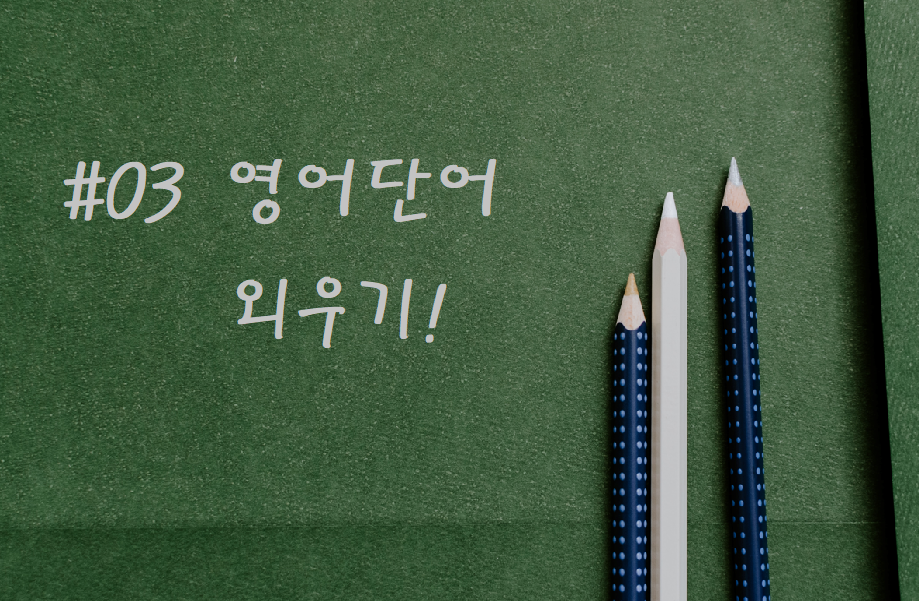 #03 영어단어
외우기!